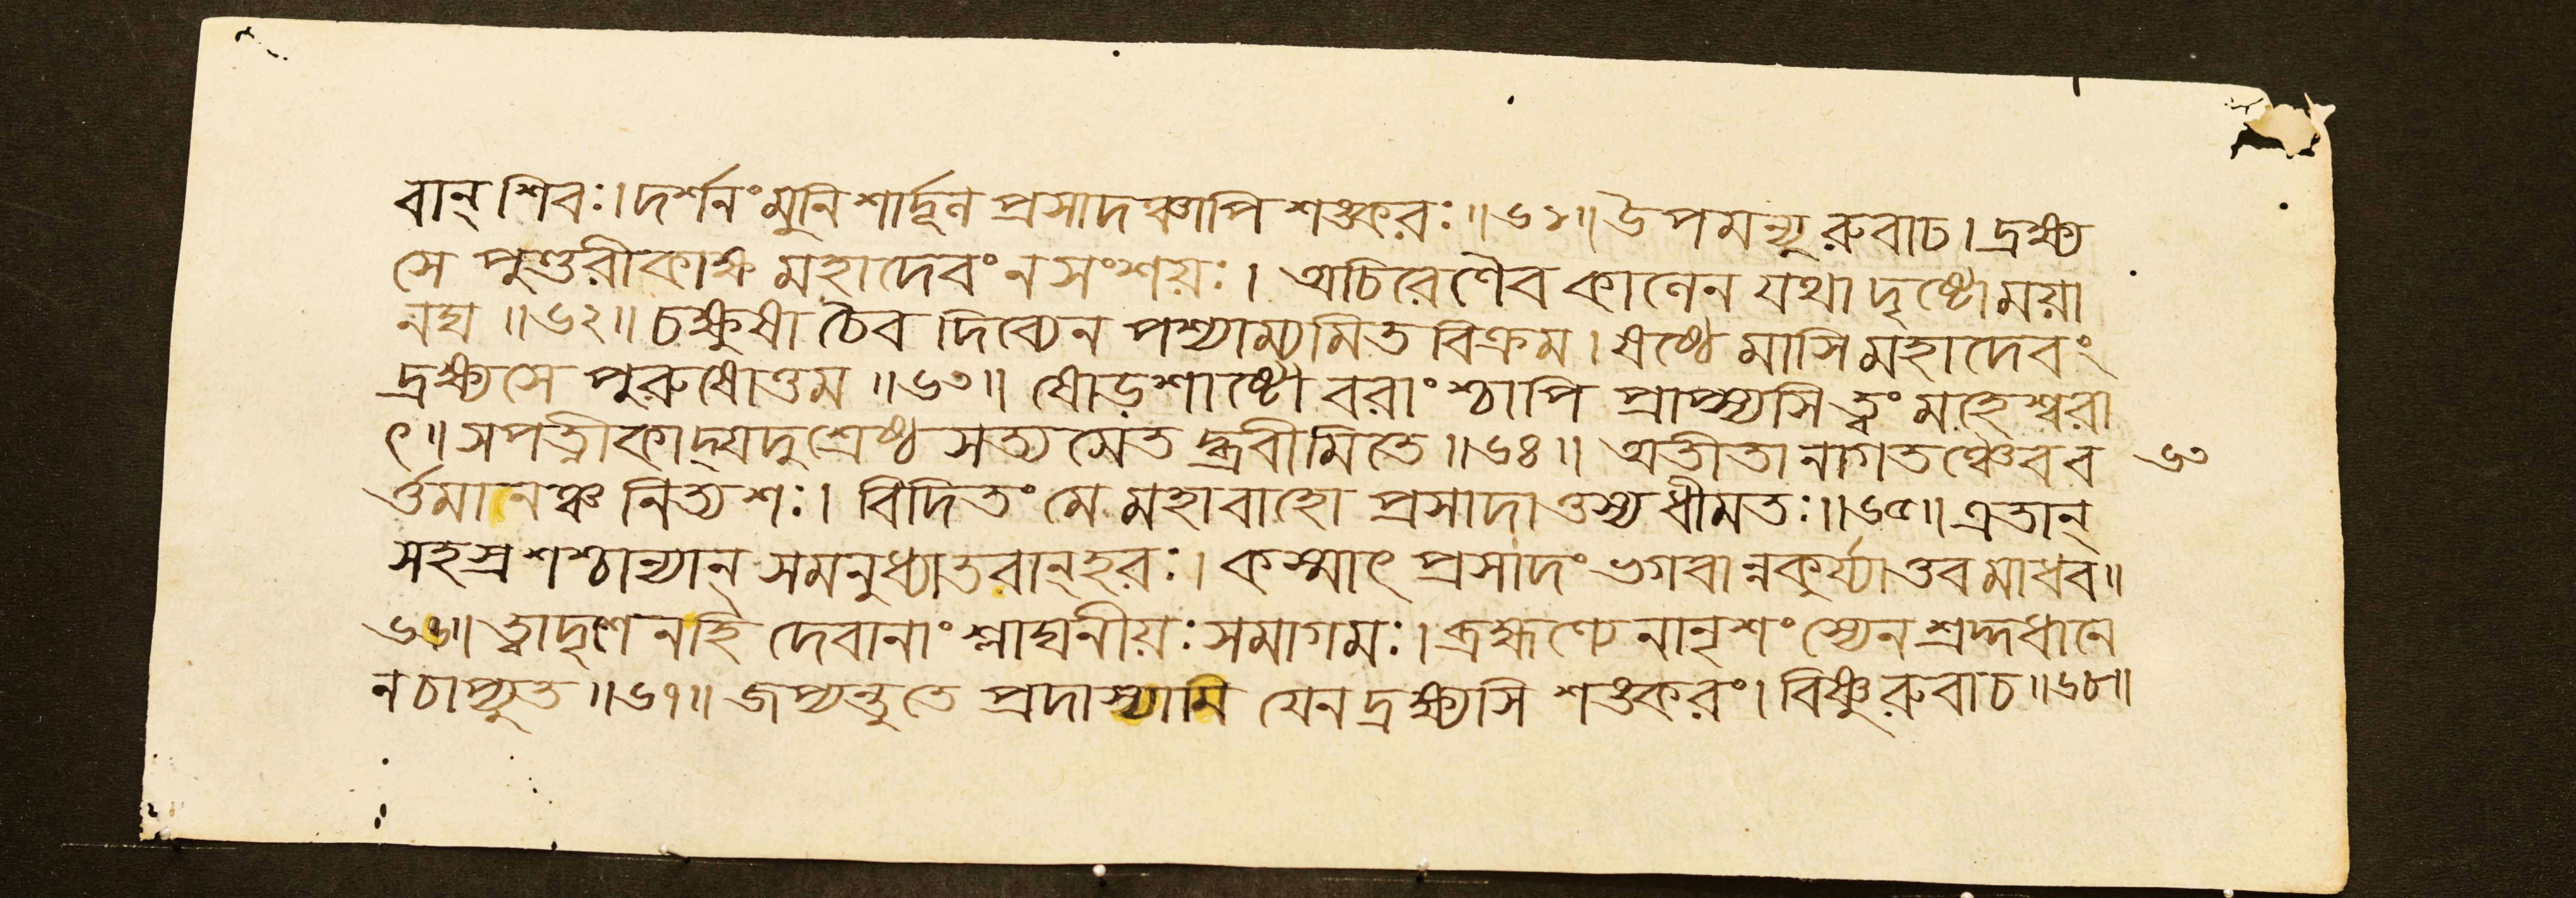 বান্ শিবঃ। দর্শনং মুনিশার্দ্দূল প্রসাদঞ্চাপি শঙ্করঃ॥৬১॥ উপমন্যুরুবাচ। দ্রক্ষ্য
সে পুণ্ডরীকাক্ষ মহাদেবং ন সংশয়ঃ। অচিরেণৈব কালেন যথা দৃষ্টো ময়া
নঘ॥৬২॥ চক্ষুষা চৈব দিব্যেন পশ্যাম্যমিতবিক্রম। ষষ্ঠে মাসি মহাদেবং
দ্রক্ষ্যসে পুরুষোত্তম॥৬৩॥ ষোড়শাষ্টৌ বরাংশ্চাপি প্রাপ্স্যসি ত্বং মহেশ্বরা
ৎ॥ সপত্নীকাদ্যদুশ্রেষ্ঠ সত্যমেতদ্ব্রবীমি তে॥৬৪॥ অতীতানাগতঞ্চৈব ব ৬৩
র্ত্তমানঞ্চ নিত্যশঃ। বিদিতং মে মহাবাহো প্রসাদাত্তস্য ধীমতঃ॥৬৫॥ এতান্
সহস্রশশ্চান্যান্ সমনুধ্যাতবান্ হরঃ। কস্মাৎ প্রসাদং ভগবান্নকুর্য্যাত্তব মাধব॥
৬৬॥ ত্বাদৃশেন হি দেবানাং শ্লাঘনীয়ঃ সমাগমঃ। ব্রহ্মণ্যেনানৃশংস্যেন শ্রদ্দধানে
ন চাপ্যুত॥৬৭॥ জপ্যন্তু তে প্রদাস্যামি যেন দ্রক্ষ্যসি শঙ্করং। বিষ্ণুরুবাচ॥৬৮॥